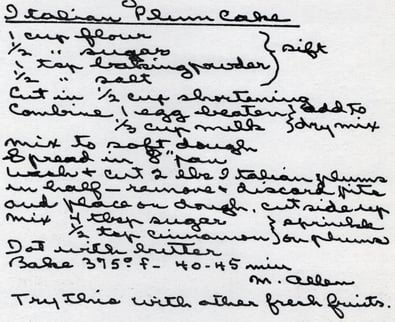 Italian Plum Cake
1 cup flour
1/2 " sugar
1 tsp baking powder } sift
1/2 " salt
Cut in 1/2 cup shortening
Combine 1 egg beaten } add to
1/3 cup milk } dry mix
mix to soft dough
Spread in 8" pan
wash + cut 2 lbs Italian plums
in half - remove + discard pits
and place on dough, cut side up
mix 4 tbsp sugar } sprinkle
1/2 tsp cinnamon } on plums
Dot with butter
Bake 375° f - 40-45 min
M. Allen
Try this with other fresh fruits.